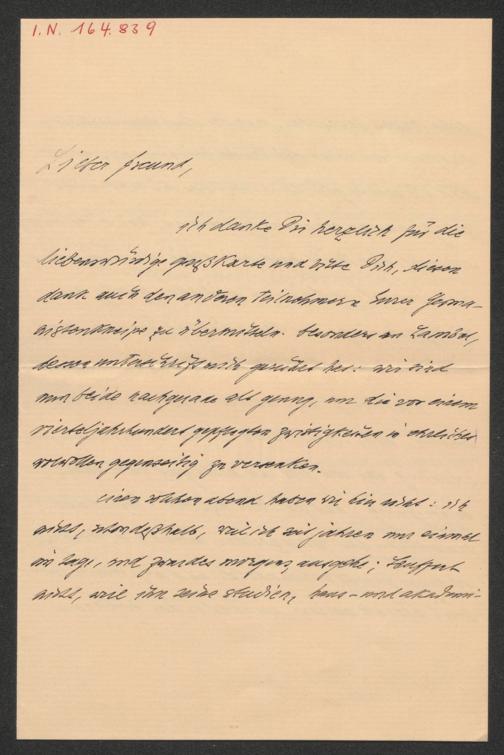 I.N. 164.839
Lieber freund,
ich danke Dir herzlich für die
liebenswürdige grußkarte und bitte Dich, diesen
dank auch den anderen teilnehmern Eurer Germa-
nistenkneipe zu übermitteln. besonders an Lambel,
dessen unterschrift mich gerührt hat: wir sind
nun beide nachgerade alt genug, um die vor einem
vierteljahrhundert gepflegten zwistigkeiten in
wolwollen gegenseitig zu versenken.
einen solchen abend haben wir hier nicht: ich
nicht, schon deßhalb, weil ich seit jahren nur einmal
im tage, und zwar des morgens, ausgehe; Seuffert
nicht, weil ihn seine studien, haus- und akademi-